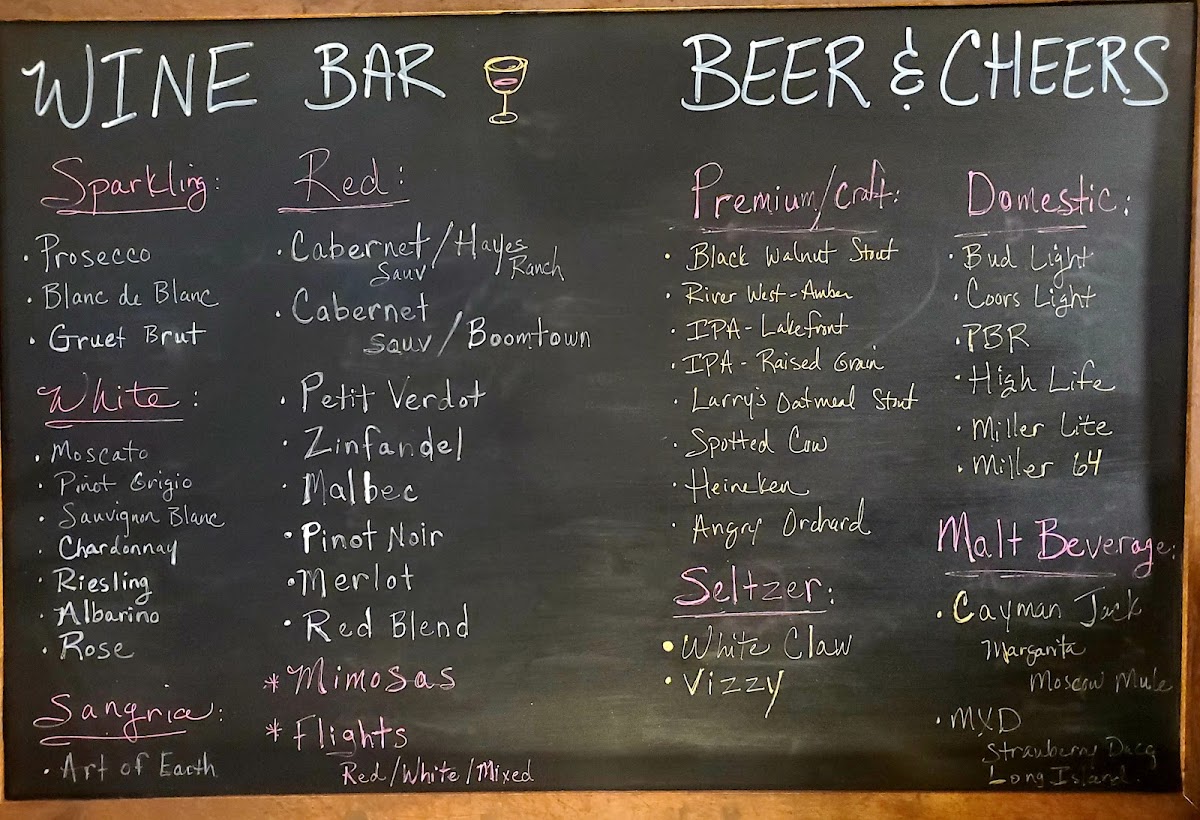 WINE BAR
Sparkling:
· Prosecco
· Blanc de Blanc
· Gruet Brut
White:
· Moscato
· Pinot Grigio
· Sauvignon Blanc
· Chardonnay
· Riesling
· Albarino
· Rose
Sangria:
· Art of Earth
Red:
· Cabernet / Hayes
Sauv Ranch
· Cabernet
Sauv / Boomtown
· Petit Verdot
· Zinfandel
· Malbec
· Pinot Noir
· Merlot
· Red Blend
* Mimosas
* Flights
Red/White/Mixed
BEER & CHEERS
Premium/Craft:
· Black Walnut Stout
· River West - Amber
· IPA - Lakefront
· IPA - Raised Grain
· Larry's Oatmeal Stout
· Spotted Cow
· Heineken
· Angry Orchard
Seltzer:
· White Claw
· Vizzy
Domestic:
· Bud Light
· Coors Light
· PBR
· High Life
· Miller Lite
· Miller 64
Malt Beverage:
· Cayman Jack
Margarita
Moscow Mule
· MXD
Strawberry Dacq
Long Island